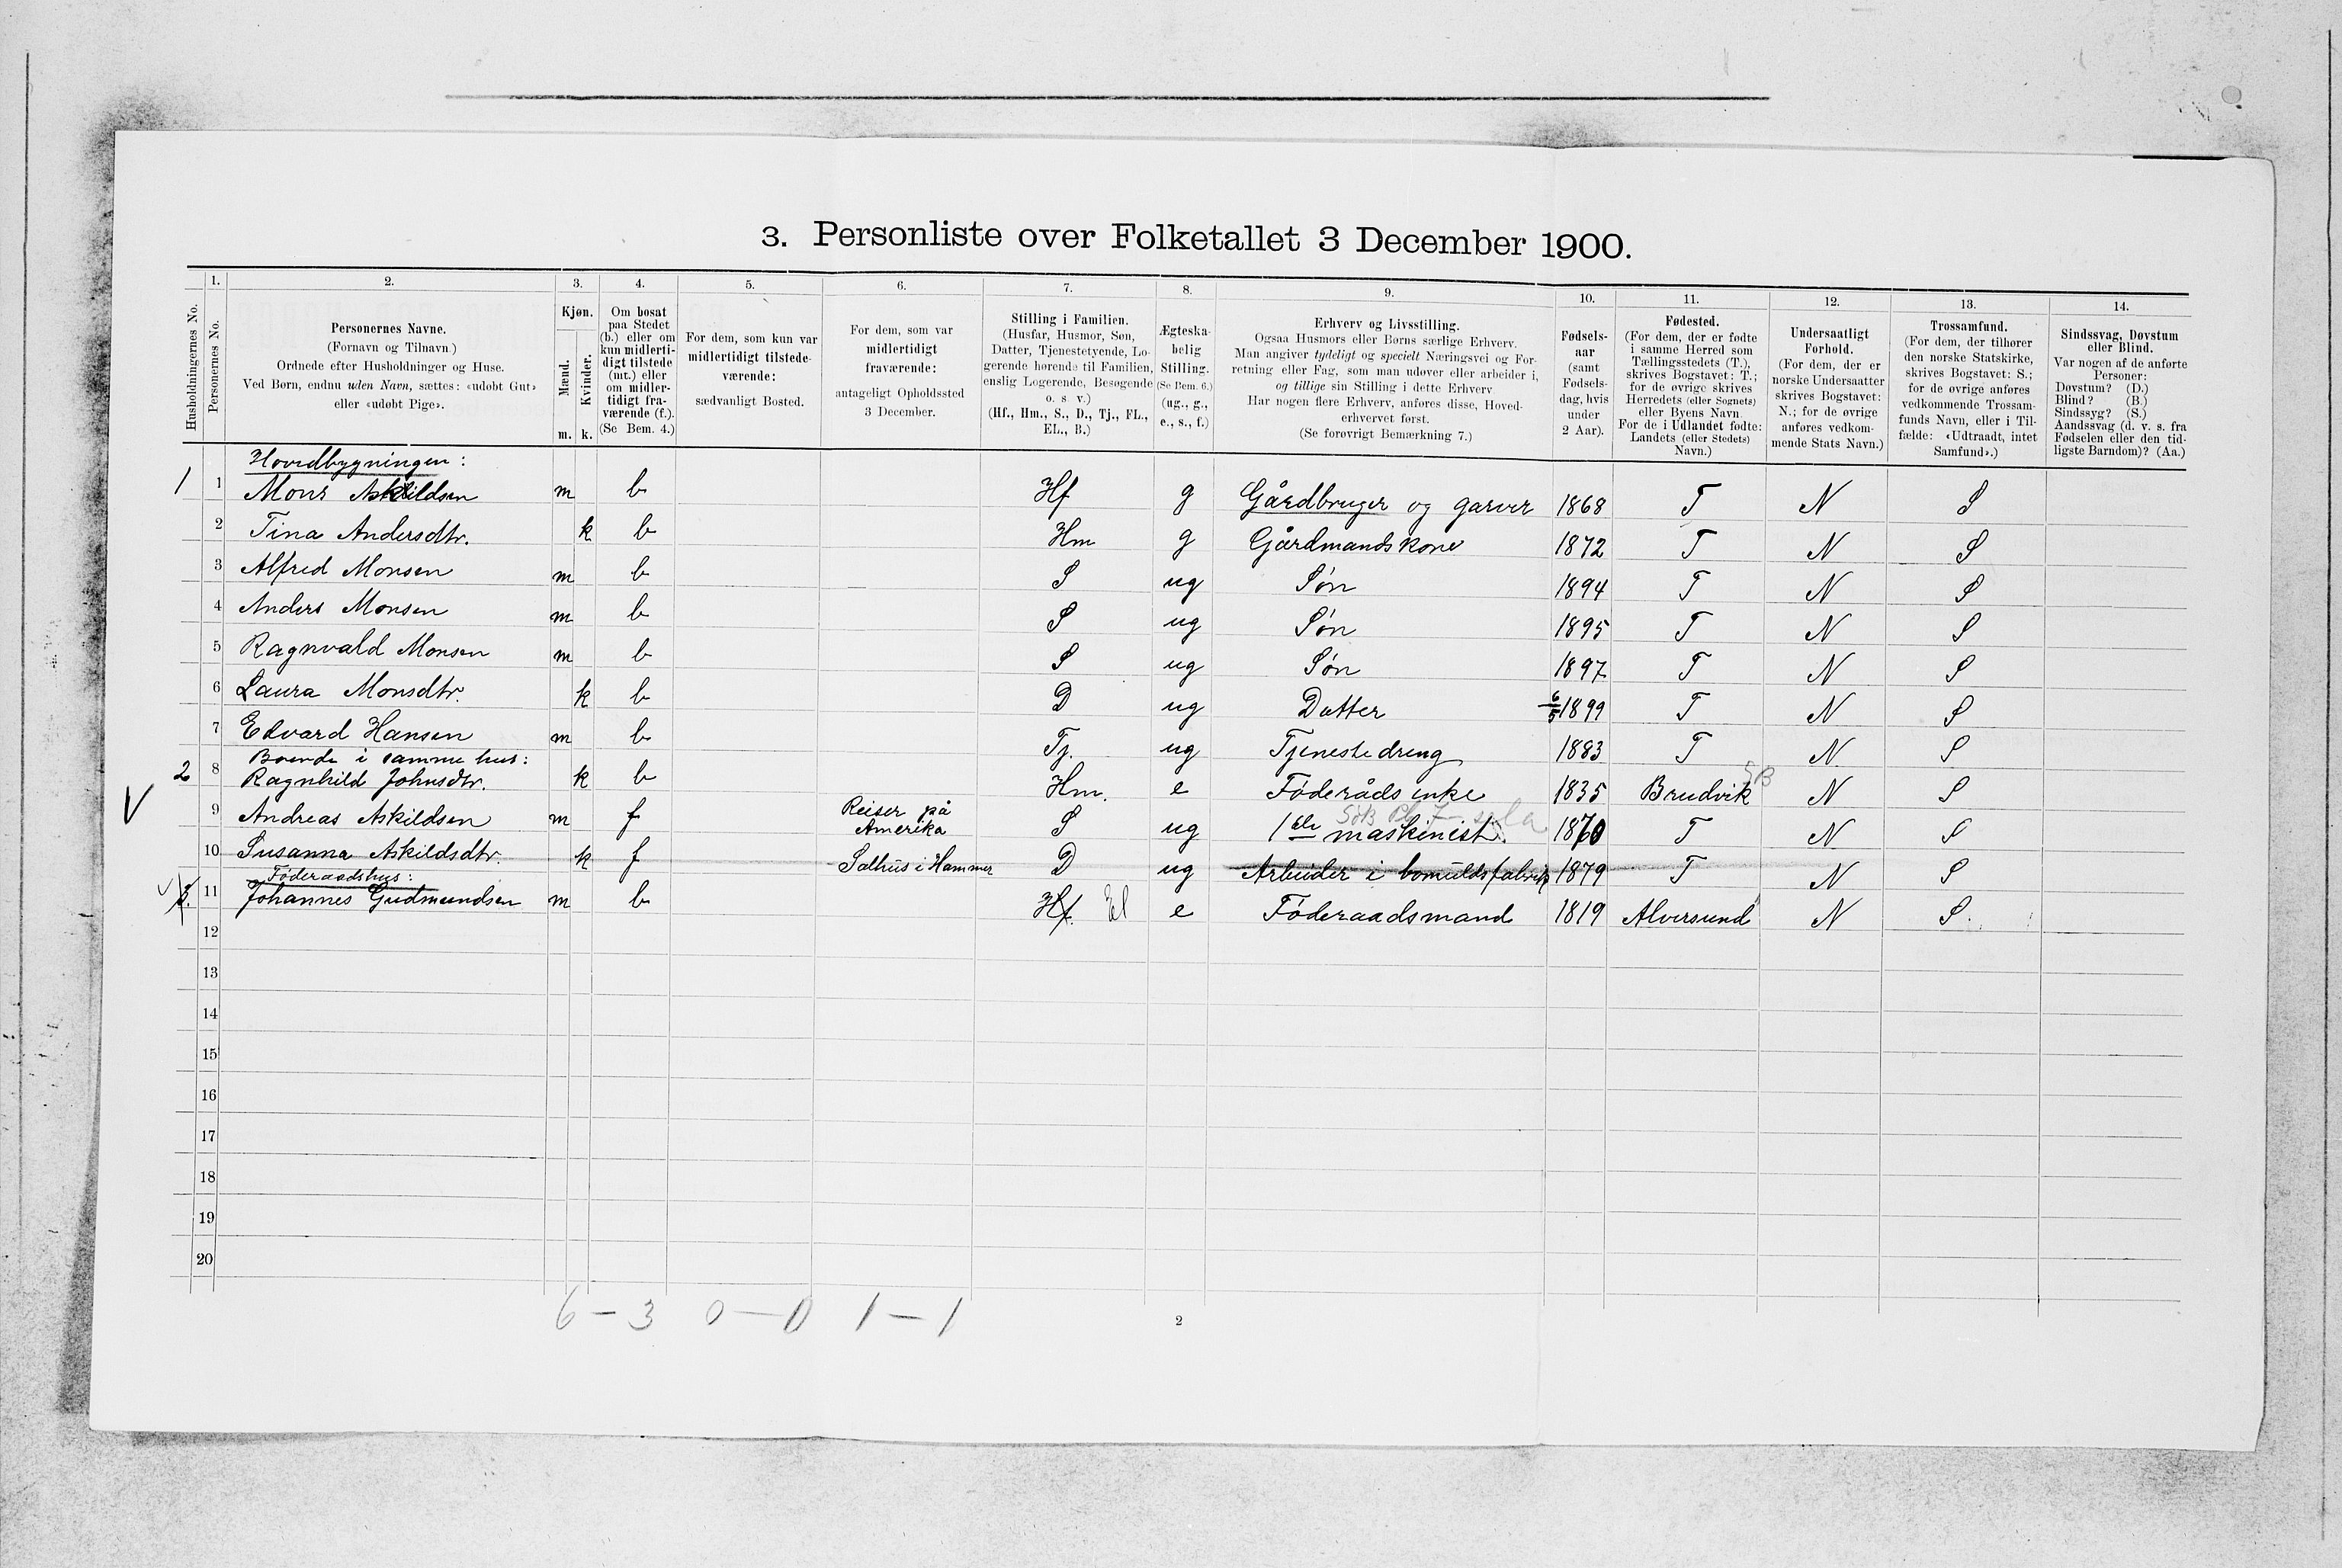 3. Personliste over Folketallet 3 December 1900.
Husholdningernes No.
1.
Personernes No.
2.
Personernes Navne.
(Fornavn og Tilnavn.)
Ordnede efter Husholdninger og Huse.
Ved Børn, endnu uden Navn, sættes: «udøbt Gut»
eller «udøbt Pige».
3.
Kjøn.
Mænd.
Kvinder.
m. k.
4.
Om bosat
paa Stedet
(b.) eller om
kun midlerti-
digt tilstede
(mt.) eller
om midler-
tidigt fra-
værende (f.).
(Se Bem. 4.)
5.
For dem, som kun var
midlertidigt tilstede-
værende:
sædvanligt Bosted.
6.
For dem, som var
midlertidigt
fraværende:
antageligt Opholdssted
3 December.
7.
Stilling i Familien.
(Husfar, Husmor, Søn,
Datter, Tjenestetyende, Lo-
gerende hørende til Familien,
enslig Logerende, Besøgende
o. s. v.)
(Hf., Hm., S., D., Tj., FL.,
EL., B.)
8.
Ægteska-
belig
Stilling.
(Se Bem. 6.)
(ug., g.,
e., s., f.)
9.
Erhverv og Livsstilling.
Ogsaa Husmors eller Børns særlige Erhverv.
Man angiver tydeligt og specielt Næringsvei og For-
retning eller Fag, som man udøver eller arbeider i,
og tillige sin Stilling i dette Erhverv
Har nogen flere Erhverv, anføres disse, Hoved-
erhvervet først.
(Se forøvrigt Bemærkning 7.)
10.
Fødsels-
aar
(samt
Fødsels-
dag, hvis
under
2 Aar).
11.
Fødested.
(For dem, der er fødte
i samme Herred som
Tællingsstedets (T.),
skrives Bogstavet: T.;
for de øvrige skrives
Herredets (eller Sognets)
eller Byens Navn.
For de i Udlandet fødte:
Landets (eller Stedets)
Navn.)
12.
Undersaatligt
Forhold.
(For dem, der er
norske Undersaatter
skrives Bogstavet:
N.; for de øvrige
anføres vedkom-
mende Stats Navn.)
13.
Trossamfund.
(For dem, der tilhører
den norske Statskirke,
skrives Bogstavet: S.;
for de øvrige anføres
vedkommende Trossam-
funds Navn, eller i Til-
fælde: «Udtraadt, intet
Samfund».)
14.
Sindssvag, Døvstum
eller Blind.
Var nogen af de anførte
Personer:
Døvstum? (D.)
Blind? (B.)
Sindssyg? (S.)
Aandssvag (d. v. s. fra
Fødselen eller den tid-
ligste Barndom)? (Aa.)
Hovedbygningen:
1 1 Mons Askildsen m b Hf g Gårdbruger og garver 1868 T N S
2 Tina Andersdtr. k b Hm g Gårdmandskone 1872 T N S
3 Alfred Monsen m b S ug Søn 1894 T N S
4 Anders Monsen m b S ug Søn 1895 T N S
5 Ragnvald Monsen m b S ug Søn 1897 T N S
6 Laura Monsdtr. k b D ug Datter 6/5 1899 T N S
7 Edvard Hansen m b Tj. ug Tjenestedreng 1883 T N. S
Boende i samme hus:
2 8 Ragnhild Johnsdtr. k b Hm. e Føderåds enke 1835 Brudvik N S
V 9 Andreas Askildsen m f Reiser på
Amerika S ug 1ste maskinist. 1870 T N S
10 Susanna Askildsdtr. k f Salhus i Hammer D ug Arbeider i bomuldsfabrik 1879 T N S
Føderaadshus:
3. 11 Johannes Gudmundsen m b Hf. El e Føderaadsmand 1819 Alversund N S.
12
13
14
15
16
17
18
19
20
6 — 3 0 — 0 1 — 1
2